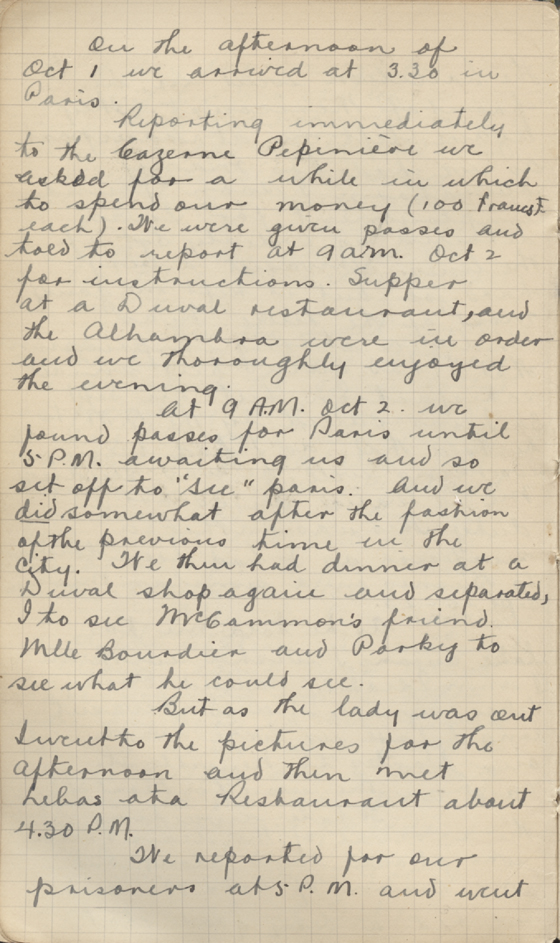 On the afternoon of
Oct 1 we arrived at 3.30 in
Paris.
Reporting immediately
to the Cazerne Pepinière we
asked for a while in which
to spend our money (100 francs
each). We were given passes and
told to report at 9 a.m. Oct 2
for instructions. Supper
at a Duval restaurant, and
the Alhambra were in order
and we thoroughly enjoyed
the evening.
At 9 A.M. Oct 2. we
found passes for Paris until
5 P.M. awaiting us and so
set off to "see" paris. And we
did somewhat after the fashion
of the previous time in the
city. We then had dinner at a
Duval shop again and separated,
I to see McCammon's friend.
Mlle Bourdier and Parky to
see what he could see.
But as the lady was out
I went to the pictures for the
afternoon and then met
Lebas at a Restaurant about
4.30 P.M.
We reported for our
prisoners at 5 P.M. and went